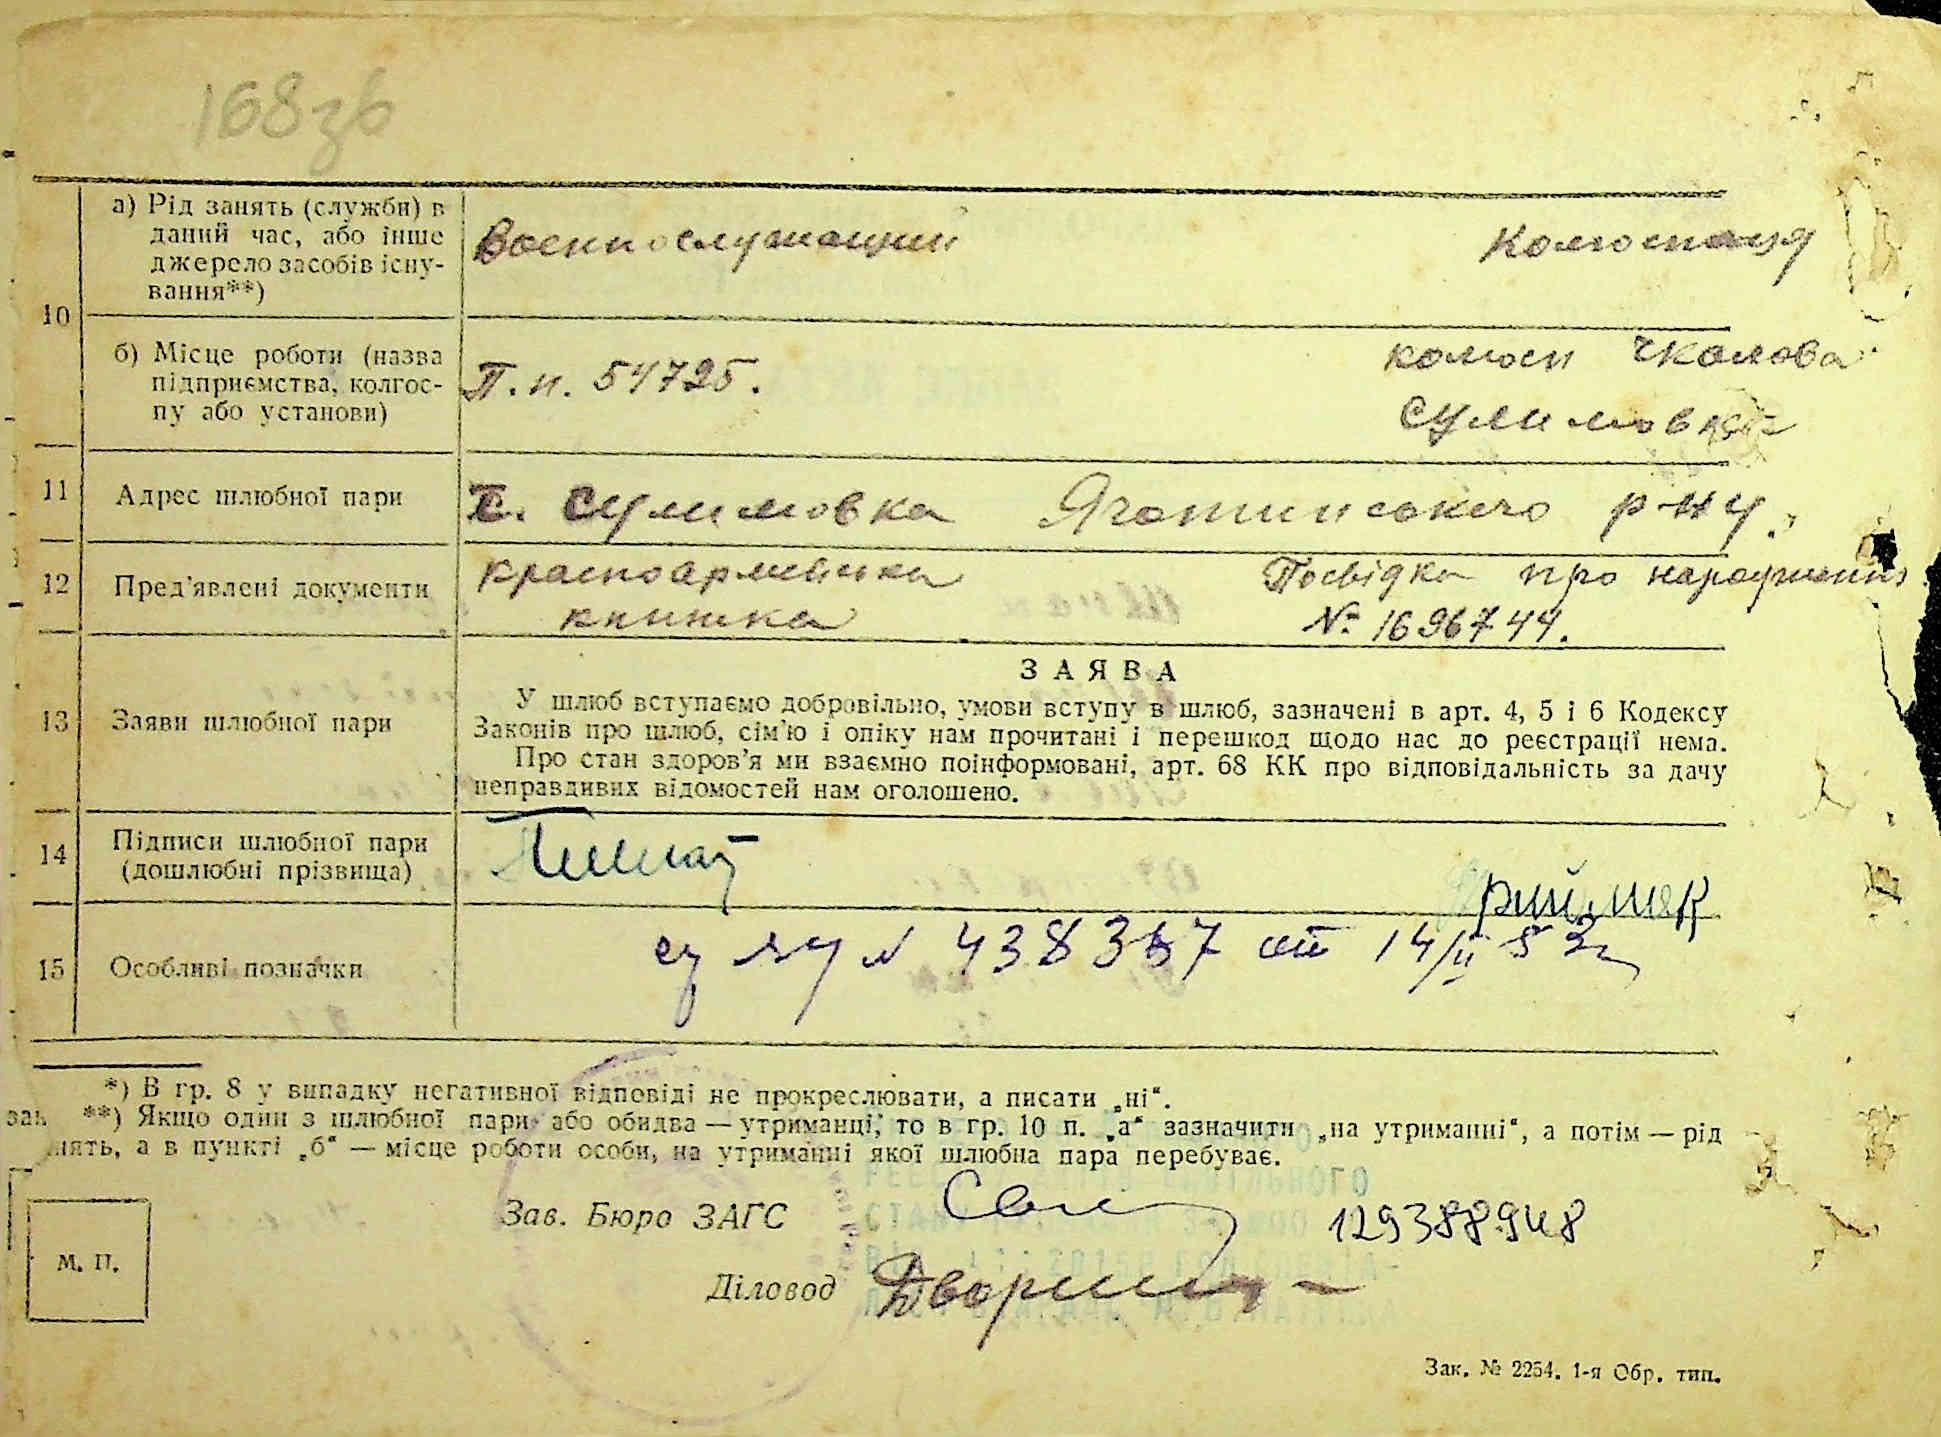 168зв
10
а) Рід занять (служби) в
даний час, або інше
джерело засобів існу-
вання**)
Военнослужащий
Колгоспниця
б) Місце роботи (назва
підприємства, колгос-
пу або установи)
П.п. 54725.
колгосп Чкалова
Сулимовка
11
Адрес шлюбної пари
с. Сулимовка Яготинського р-ну.
12
Пред'явлені документи
Красноармейська
книжка
Посвідка про народження
№ 1696744.
13
Заяви шлюбної пари
ЗАЯВА
У шлюб вступаємо добровільно, умови вступу в шлюб, зазначені в арт. 4, 5 і 6 Кодексу
Законів про шлюб, сім'ю і опіку нам прочитані і перешкод щодо нас до реєстрації нема.
Про стан здоров'я ми взаємно поінформовані, арт. 68 КК про відповідальність за дачу
неправдивих відомостей нам оголошено.
14
Підписи шлюбної пари
(дошлюбні прізвища)
15
Особливі позначки
№ 438357 от 14/II 52
*) В гр. 8 у випадку негативної відповіді не прокреслювати, а писати „ні“.
**) Якщо один з шлюбної пари або обидва — утриманці, то в гр. 10 п. „а“ зазначити „на утриманні“, а потім — рід
занять, а в пункті „б“ — місце роботи особи, на утриманні якої шлюбна пара перебуває.
Зав. Бюро ЗАГС
129388948
М. П.
Діловод
Зак. № 2254. 1-я Обр. тип.